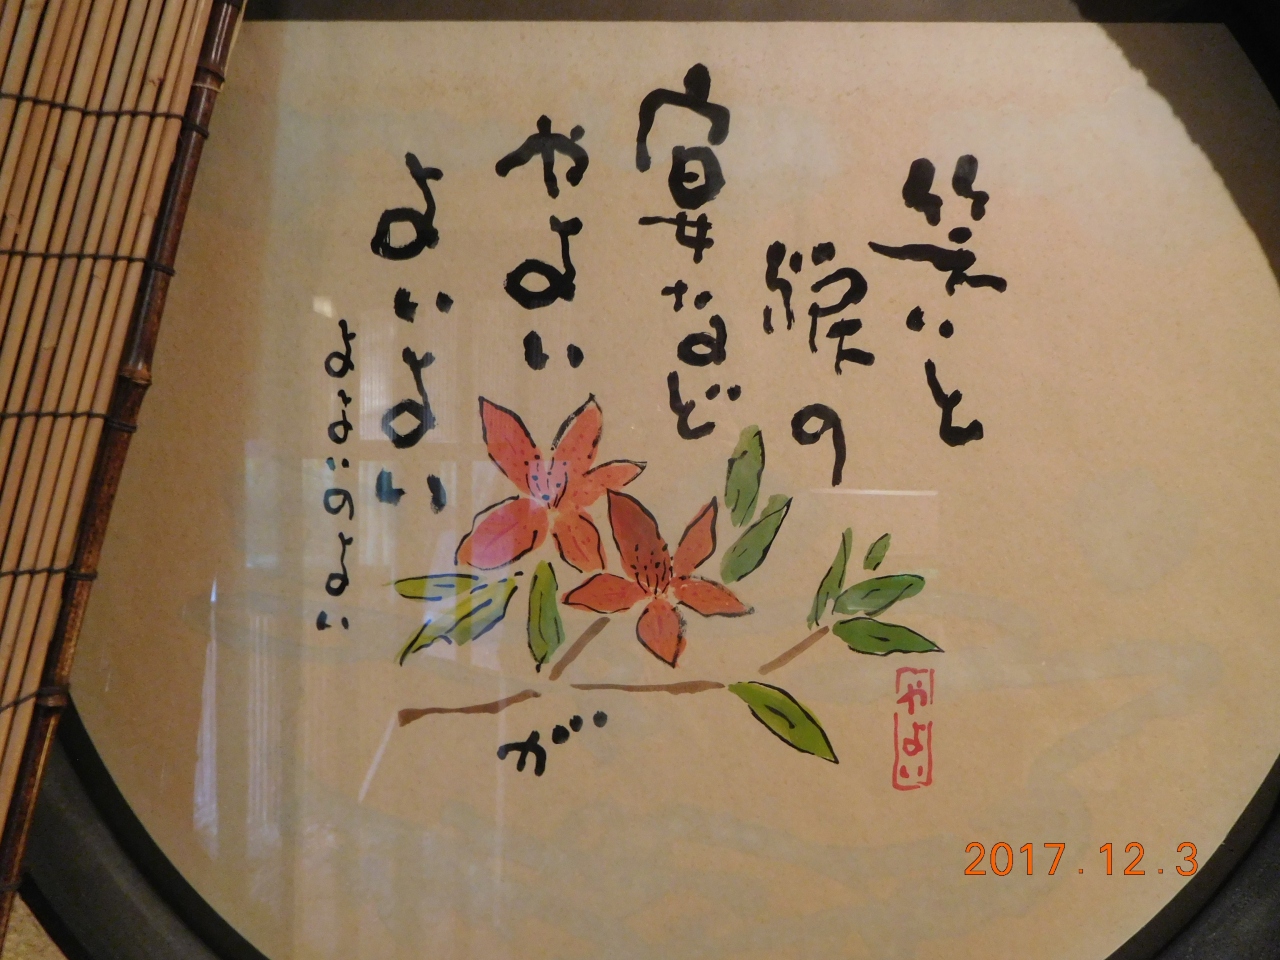 笑いと
涙の
宴など
やよい
よいよい
よよいのよい
が
やよい
2017.12.3